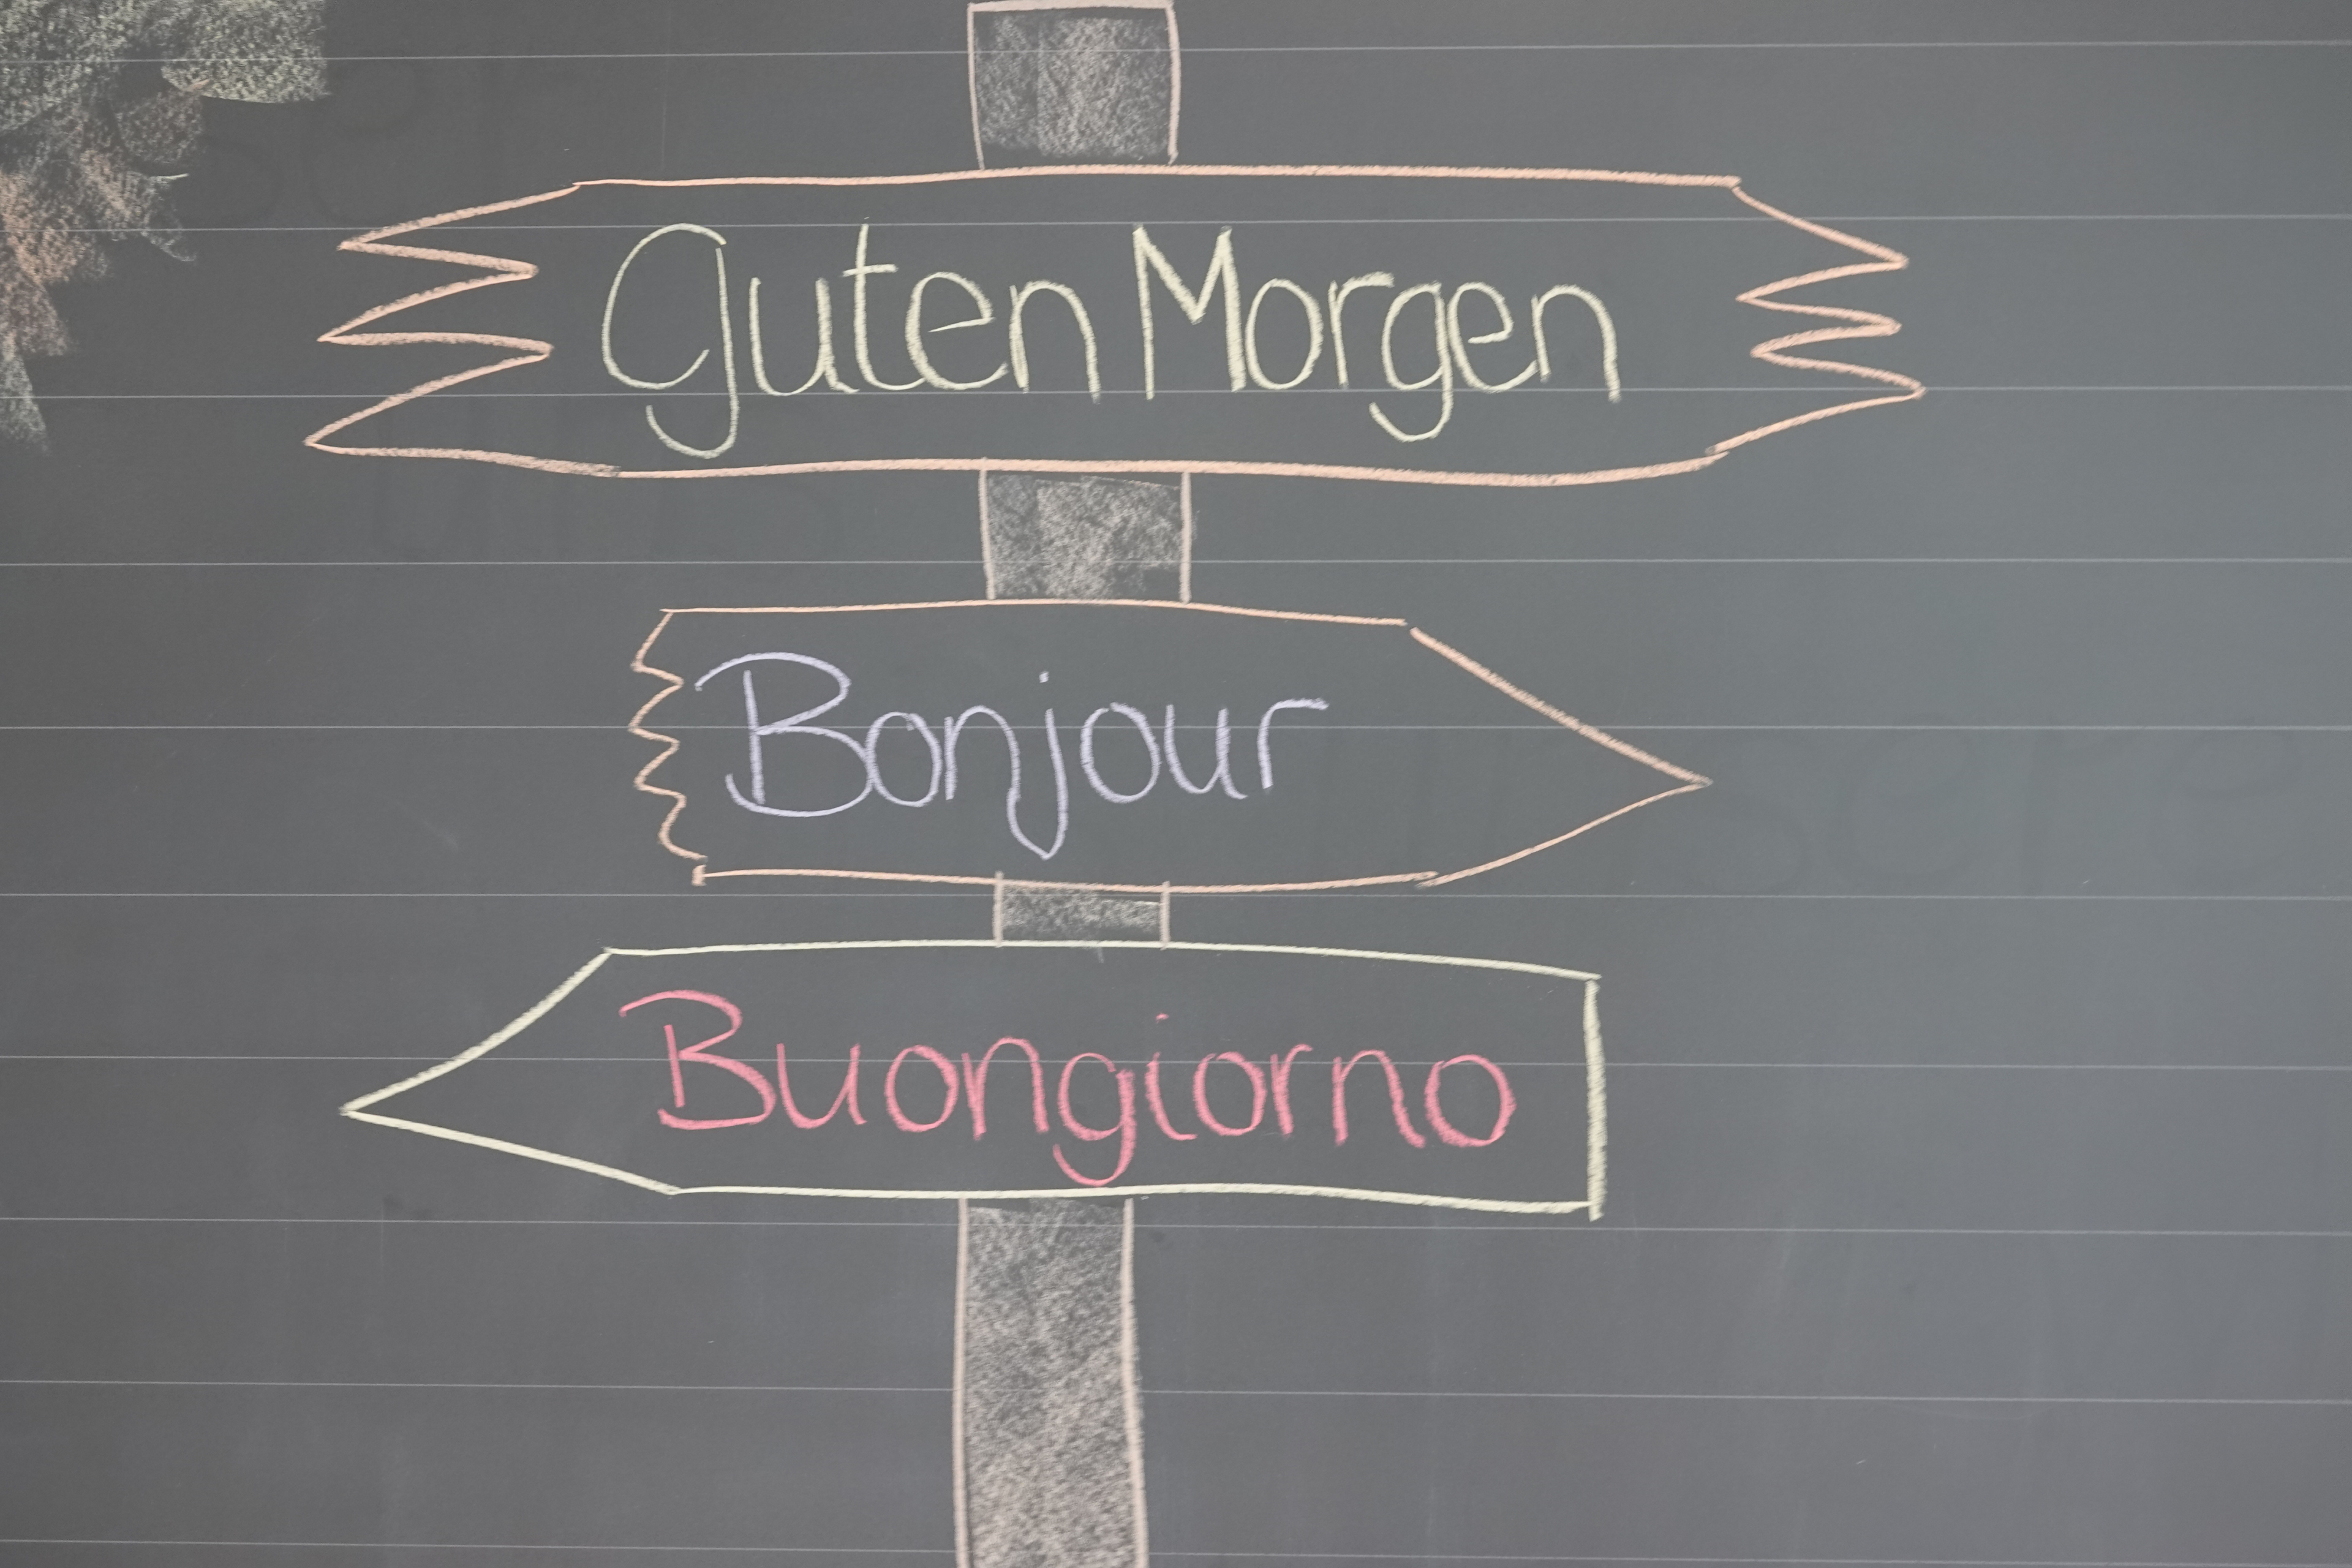 Guten Morgen
Bonjour
Buongiorno